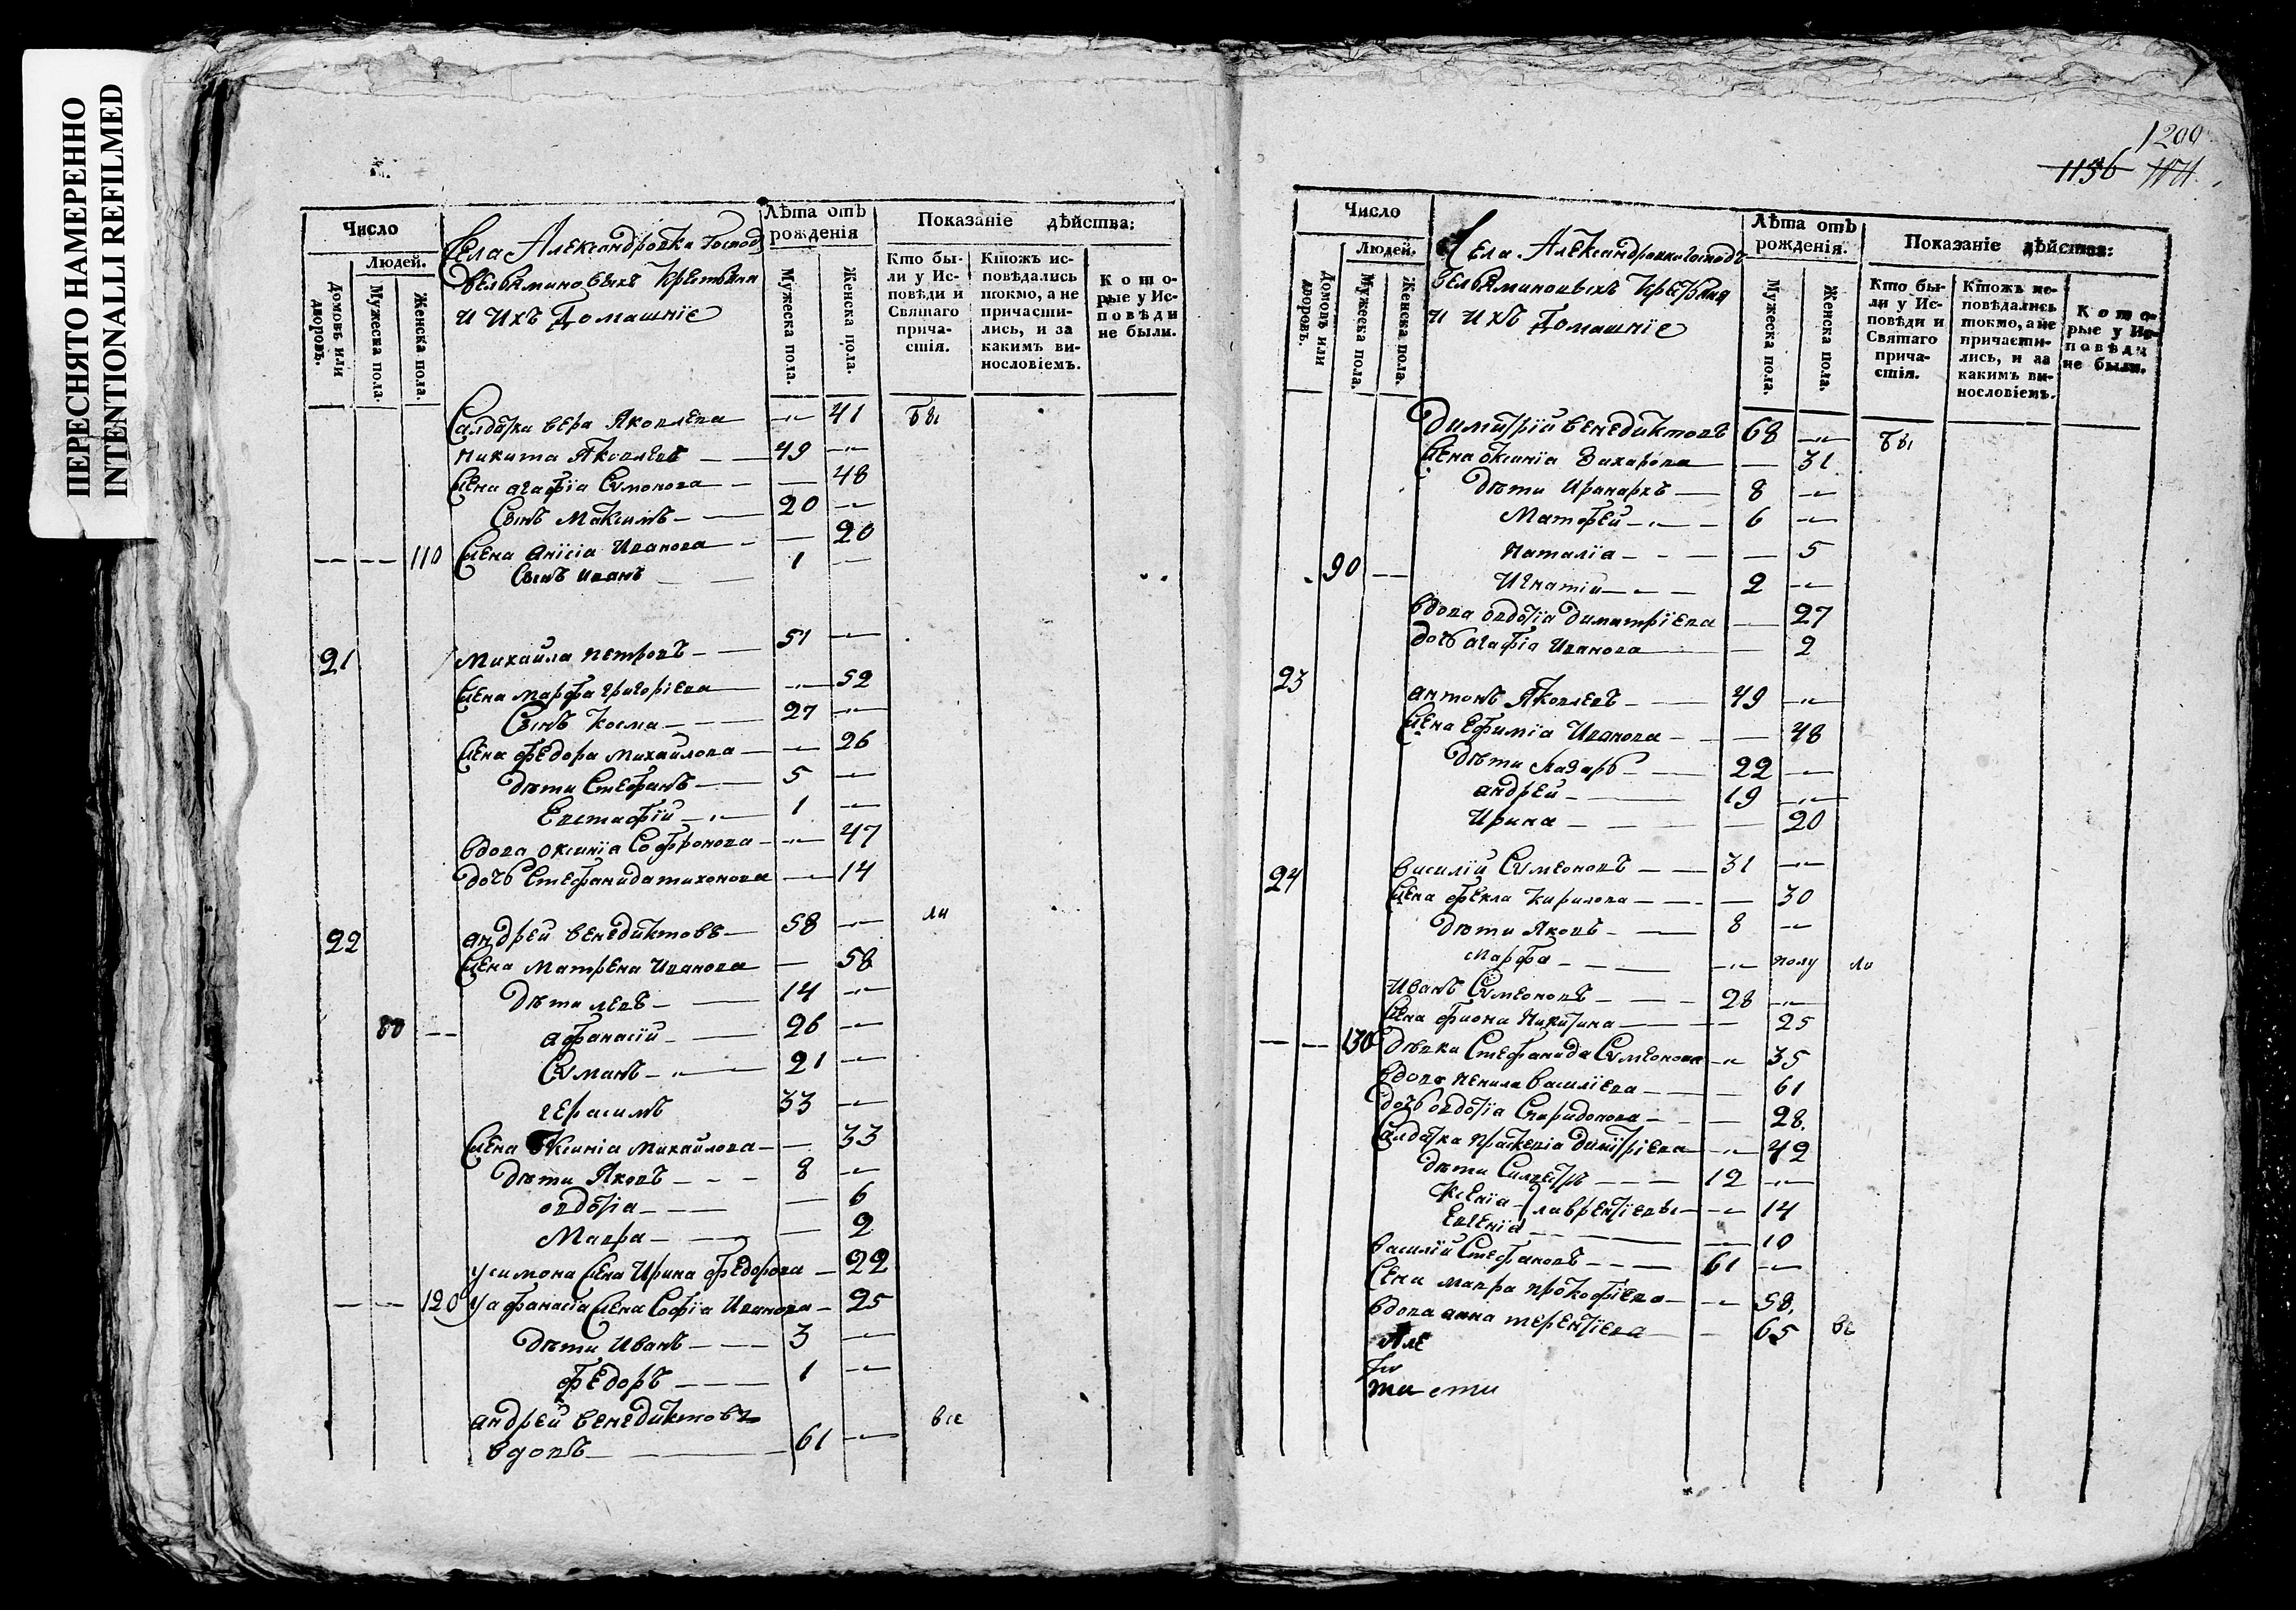 ПЕРЕСНЯТО НАМЕРЕННО
INTENTIONALLI REFILMED
Число
Людей.
Домовъ или дворовъ.
Мужеска пола.
Женска пола.
Села Александровка Господ
Вельяминовыхъ Крестьяня
и ихъ Домашніе
Лѣта отъ рожденія
Мужеска пола.
Женска пола.
Показаніе дѣйства:
Кто бы-
ли у Ис-
повѣди и
Святаго
прича-
стія.
Ктожъ ис-
повѣдались
токмо, а не
причасти-
лись, и за
какимъ ви-
нословіемъ.
Кото-
рые у Ис-
повѣди
не были.
Салдатка вера Яковлева 41 бы
Никита Яковлевъ 49
жена агафїа Сѵмонова 48
Сынъ Максимъ 20
110 жена анїсіа Иванова 20
Сынъ иванъ 1
21 Михайла петровъ 51
жена марфа григорїева 52
Сынъ Косма 27
жена федора михайлова 26
дѣти Стефанъ 5
Евстафїй 1
вдова оксинїа Софронова 47
дочь Стефанида тихонова 14
22 андрей венедиктовъ 58 ли
жена матрена иванова 58
дѣти левъ 14
80 афанасїй 26
Сѵманъ 21
герасимъ 33
жена оксинїа михайлова 33
дѣти Яковъ 8
овдотїа 6
Мавра 2
у симона жена Ирина федорова 22
120 у афанасїа жена Софїа иванова 25
дѣти Иванъ 3
федоръ 1
андрей венедиктовъ
вдовъ 61 все
1200
1156 1171
Число
Людей.
Домовъ или дворовъ.
Мужеска пола.
Женска пола.
Села Александровка Господъ
вельяминовыхъ крестьяня
и ихъ Домашнїе
Лѣта отъ рожденія.
Мужеска пола.
Женска пола.
Показаніе дѣйства:
Кто бы-
ли у Ис-
повѣди и
Святаго
прича-
стія.
Ктожъ ис-
повѣдались
токмо, а не
причасти-
лись, и за
какимъ ви-
нословіемъ.
Кото-
рые у Ис-
повѣди
не были.
Димитрїй венедиктовъ 68 бы
жена оксинїа Захарова 31
дѣти Иранархъ 8
Матфей 6
Наталїа 5
90 Игнатїй 2
вдова овдотїа димитрїева 27
дочь агафїа Иванова 2
23 антонъ Яковлевъ 49
жена ефимїа Иванова 48
дѣти лазарь 22
андрей 19
Ирина 20
24 василїй Сѵмеоновъ 31
жена фекла кирилова 30
дѣти Яковъ 8
марфа полу ли
иванъ Сѵмеоновъ 28
жена фиона Никитина 25
130 дѣвка Стефанида Сѵмеонова 35
вдова ненила василїева 61
дочь овдотїа Спиридонова 28
Салдатка праскевїа димитрїева 42
дѣти Силвестръ 12
Ксенїа лаврентїевы 14
Евгенїа 10
василїй Стефановъ 61
жена мавра прокофїева 58
вдова анна терентїева 65 все
Але
ти сти